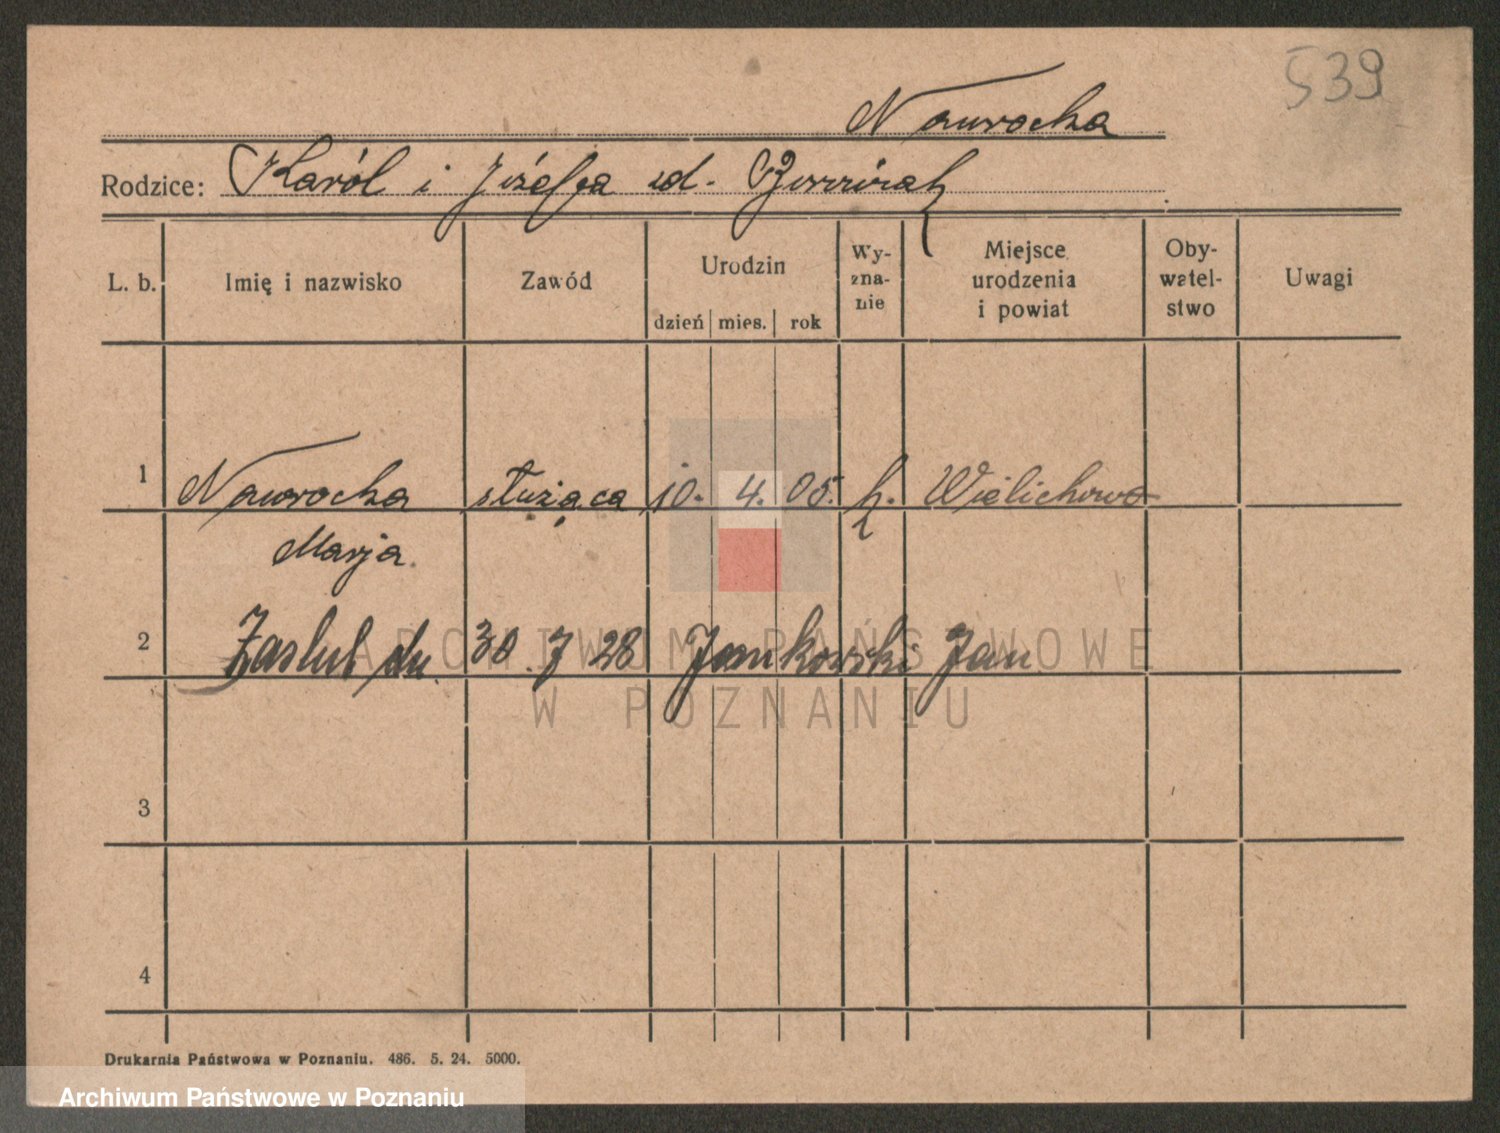 539
Nawrocka
Rodzice: Karól i Józefa zd.
L. b.
Imię i nazwisko
Zawód
Urodzin
dzień mies. rok
Wy-
zna-
nie
Miejsce
urodzenia
i powiat
Oby-
watel-
stwo
Uwagi
1 Nawrocka służąca 10. 4. 05. k. Wielichowo
Marja.
2 Zaslub dn. 30. 7 28 Jankowski Jan
3
4
ARCHIWUM PAŃSTWOWE
W POZNANIU
Drukarnia Państwowa w Poznaniu. 486. 5. 24. 5000.
Archiwum Państwowe w Poznaniu